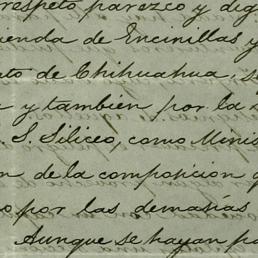 respeto parezco y dig
ienda de Encinillas y
to de Chihuahua, s
y también por la
S. Siliceo, como Minis
n de la composicion q
o por las demasias
Aunque se hayan pa